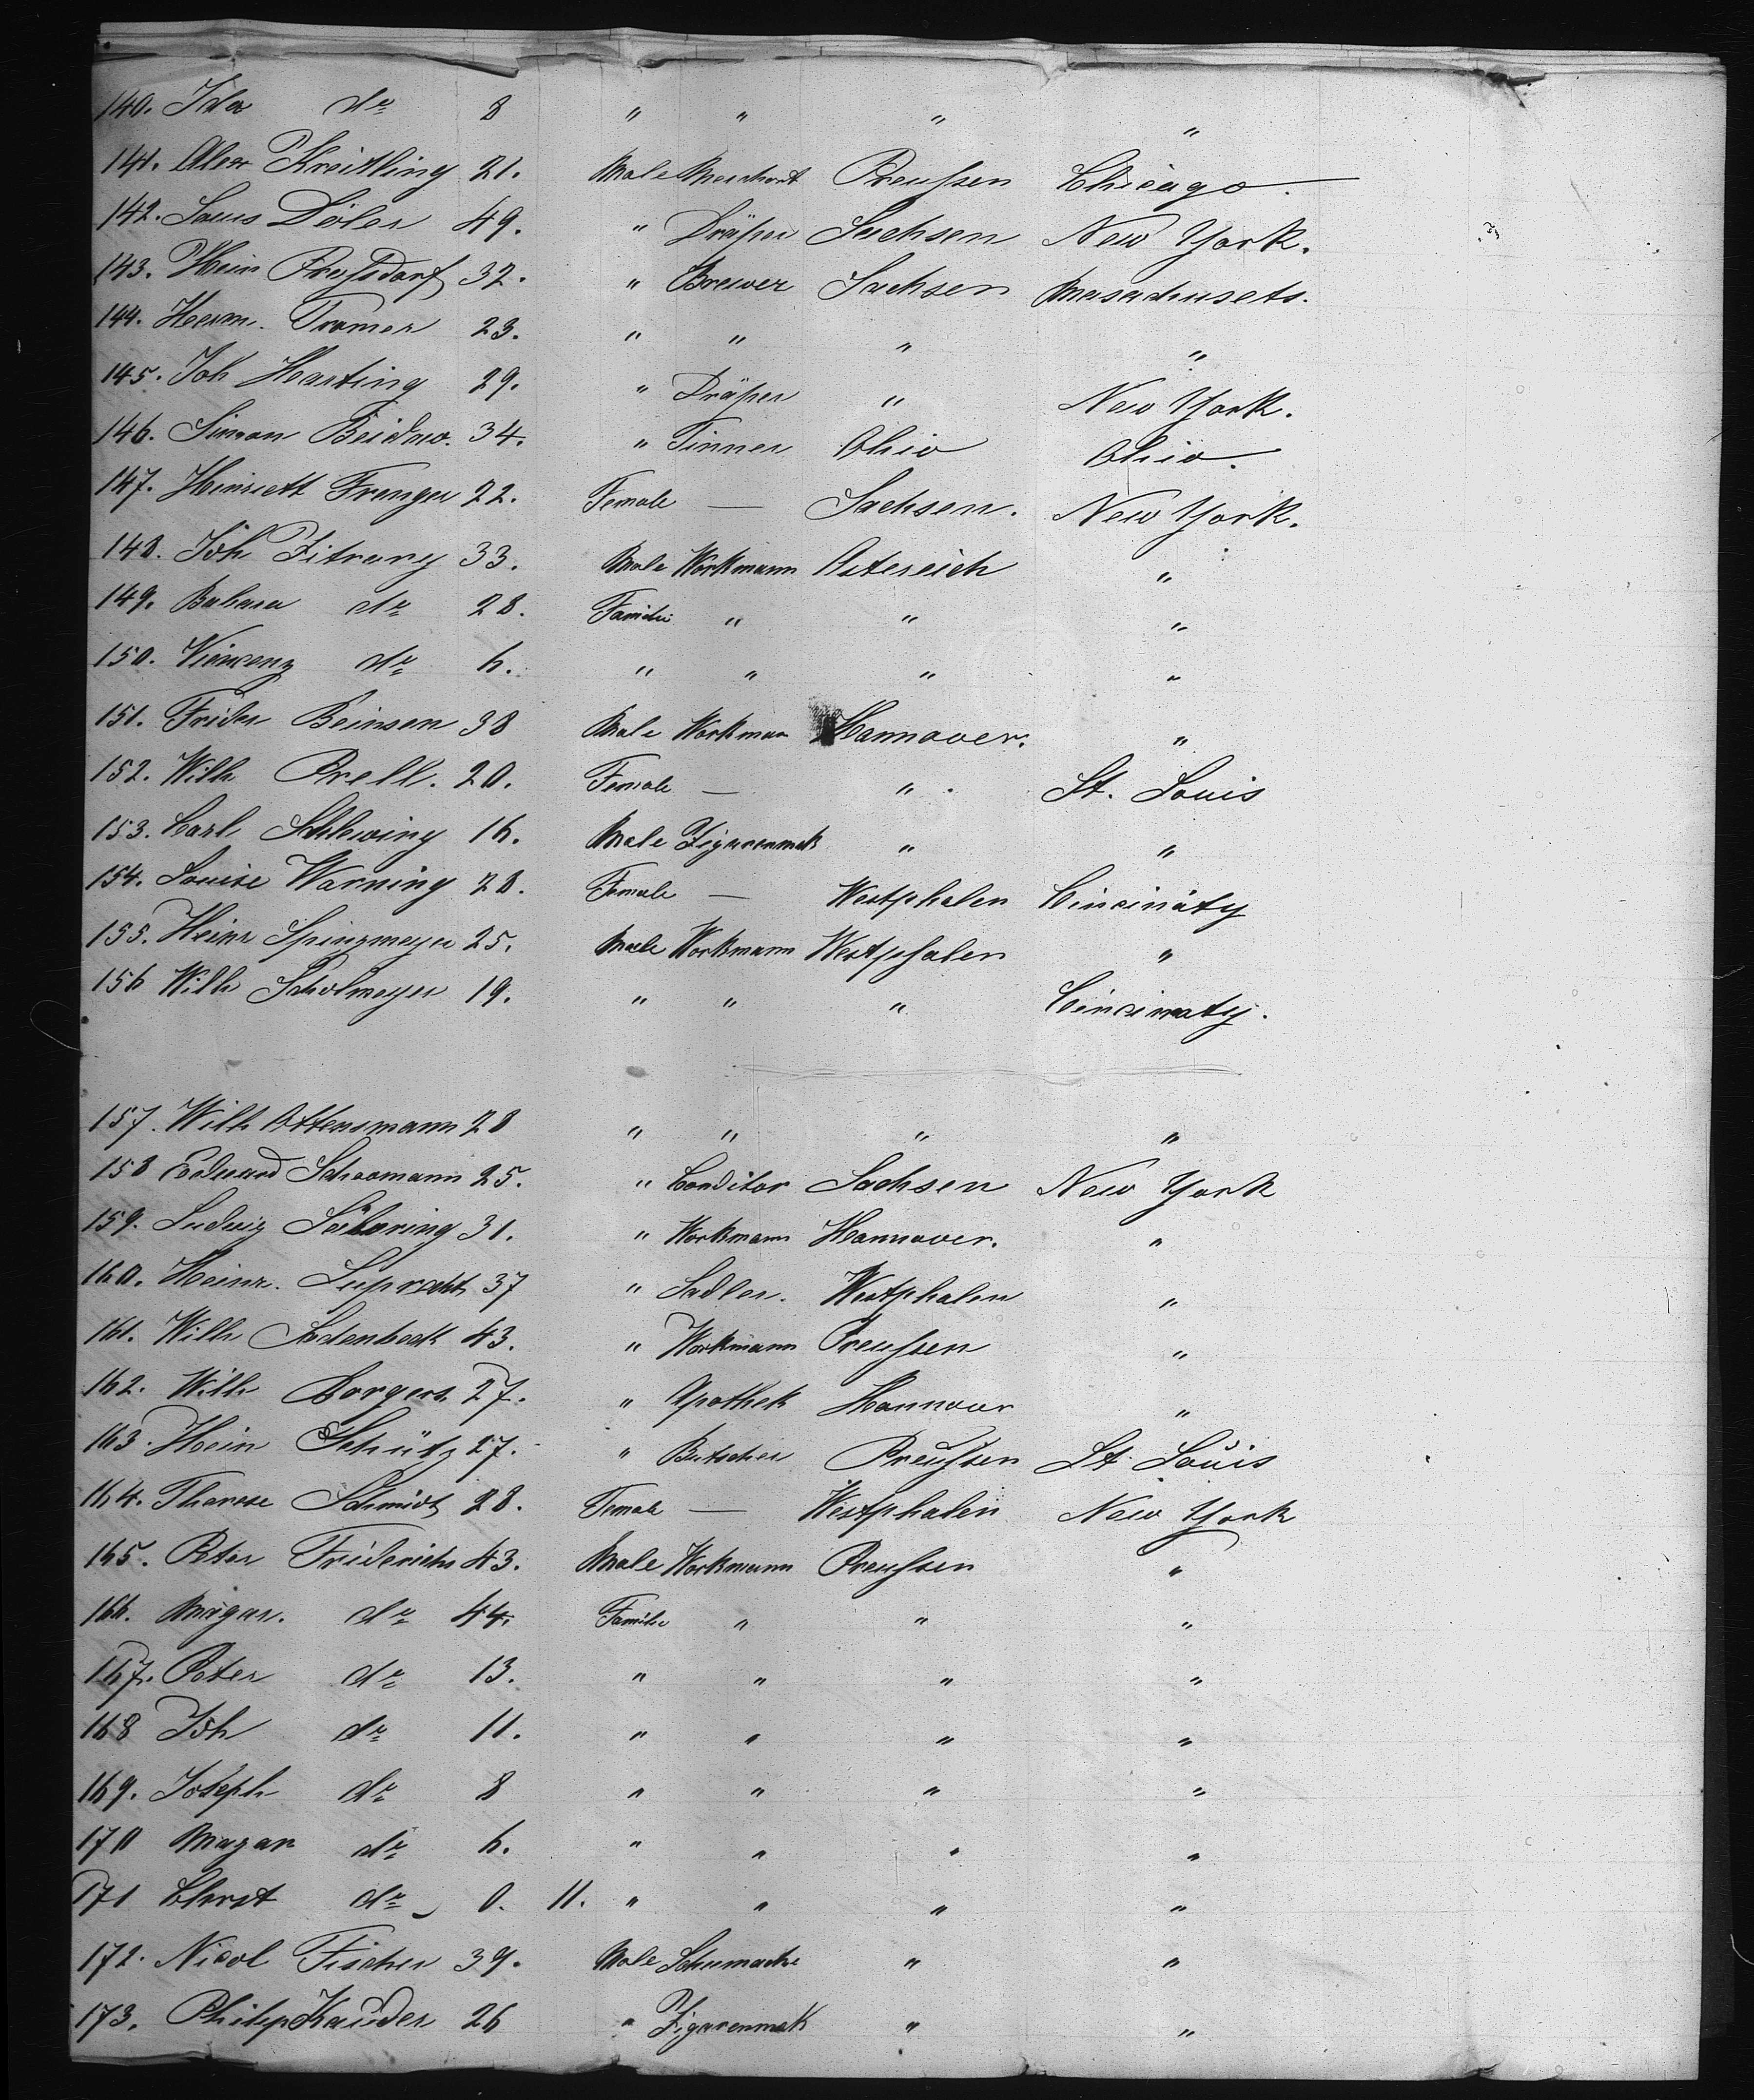 140. Ida do 8 " " " "
141. Alex Kreitling 21. Male Merchant Preußen Chicago.
142. Louis Döler 49. " Dräper Sachsen New York.
143. Hein 32. " Brewer Sachsen Masachusets.
144. Herm. Tromer 23. " " " "
145. Joh Harting 29. " Dräper " New York.
146. Simon 34. " Tinner Ohio Ohio.
147. Henriett Frenger 22. Female — Sachsen. New York.
148. Joh Zitrany 33. Male Workmann Östereich "
149. Babara do 28. Familie " " "
150. Vincenz do 6. " " " "
151. Frider Beinsen 38 Male Workman Hannover. "
152. Wilh Prell. 20. Female — " St. Louis
153. Carl Schlewing 16. Male Zigarenmak " "
154. Louise Warning 28. Female — Westphalen Cincinäty
155. Heinr Springmeyer 25. Male Workmann Westphalen "
156 Wilh Scholmeyer 19. " " " Cincinaty.
157. Wilh Ottensmann 28 " " " "
158 Eduard Schoomann 25. " Conditor Sachsen New York
159. Ludwig 31. " Workmann Hannover. "
160. Heinr. Luprecht 37 " Sadler. Westphalen "
161. Wilh Sodenbeck 43. " Workmann Preußen "
162. Wilh Borgers 27. " Apothek Hannover "
163. Hein Schütz 27. " Butscher Preußen St. Louis
164. Therese Schmidt 28. Female — Westphalen New York
165. Peter Friderichs 43. Male Workmann Preußen "
166. Magar. do 44. Familie " " "
167. Peter do 13. " " " "
168 Joh do 11. " " " "
169. Joseph do 8 " " " "
170 Magar do 6. " " " "
171 Christ do 0. 11. " " " "
172. Nicol Fischer 39. Male Schumacher " "
173. Philip Kauder 26 " Zigarenmak " "